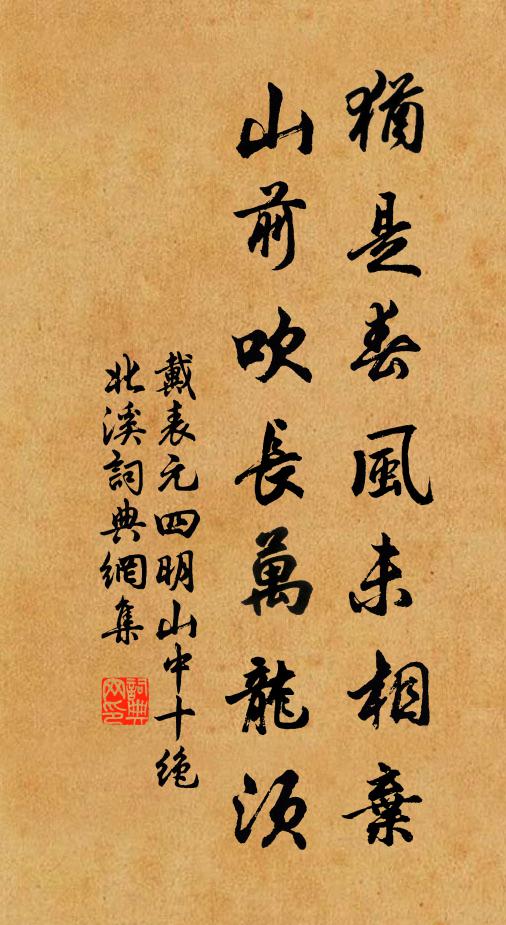 猶是春風未相棄
山前吹長萬龍須
戴表元四明山中十絶
北溪詞典網集
詞典網印